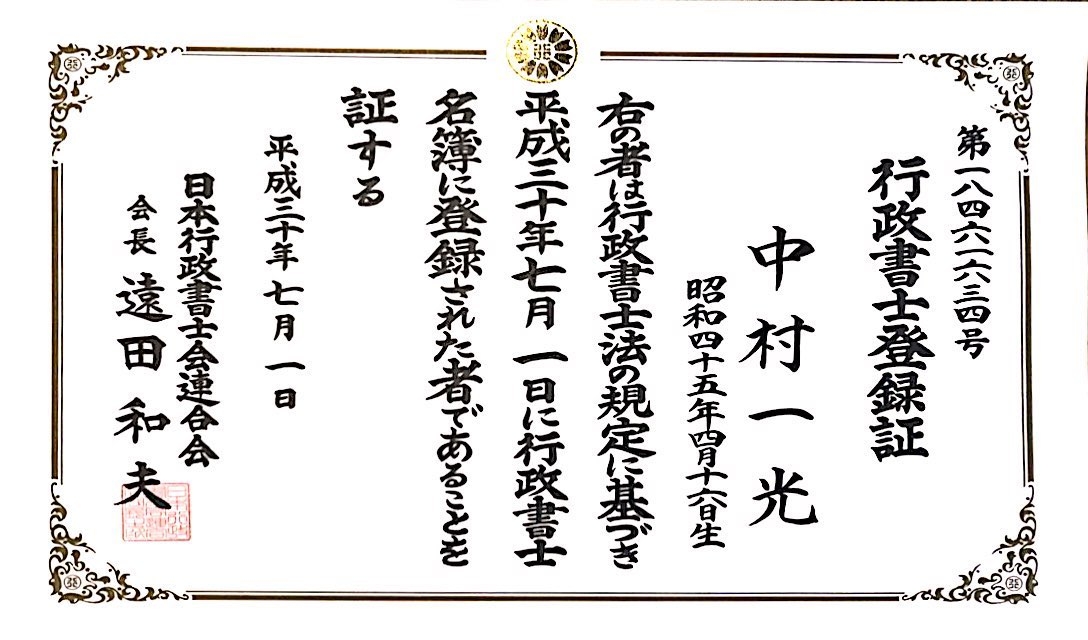 第一八四六一六三四号
行政書士登録証
中村一光
昭和四十五年四月十六日生
右の者は行政書士法の規定に基づき
平成三十年七月一日に行政書士
名簿に登録された者であることを
証する
平成三十年七月一日
日本行政書士会連合会
会長 遠田和夫